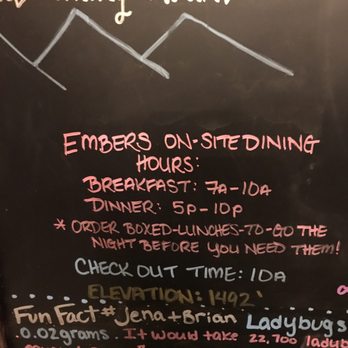 EMBERS ON-SITE DINING
HOURS:
BREAKFAST: 7A-10A
DINNER: 5P-10P
* ORDER BOXED-LUNCHES-TO-GO THE
NIGHT BEFORE YOU NEED THEM!
CHECK OUT TIME: 10A
ELEVATION: 1492'
Fun Fact # Jena + Brian Ladybugs
.002grams. It would take 22,700 ladyb